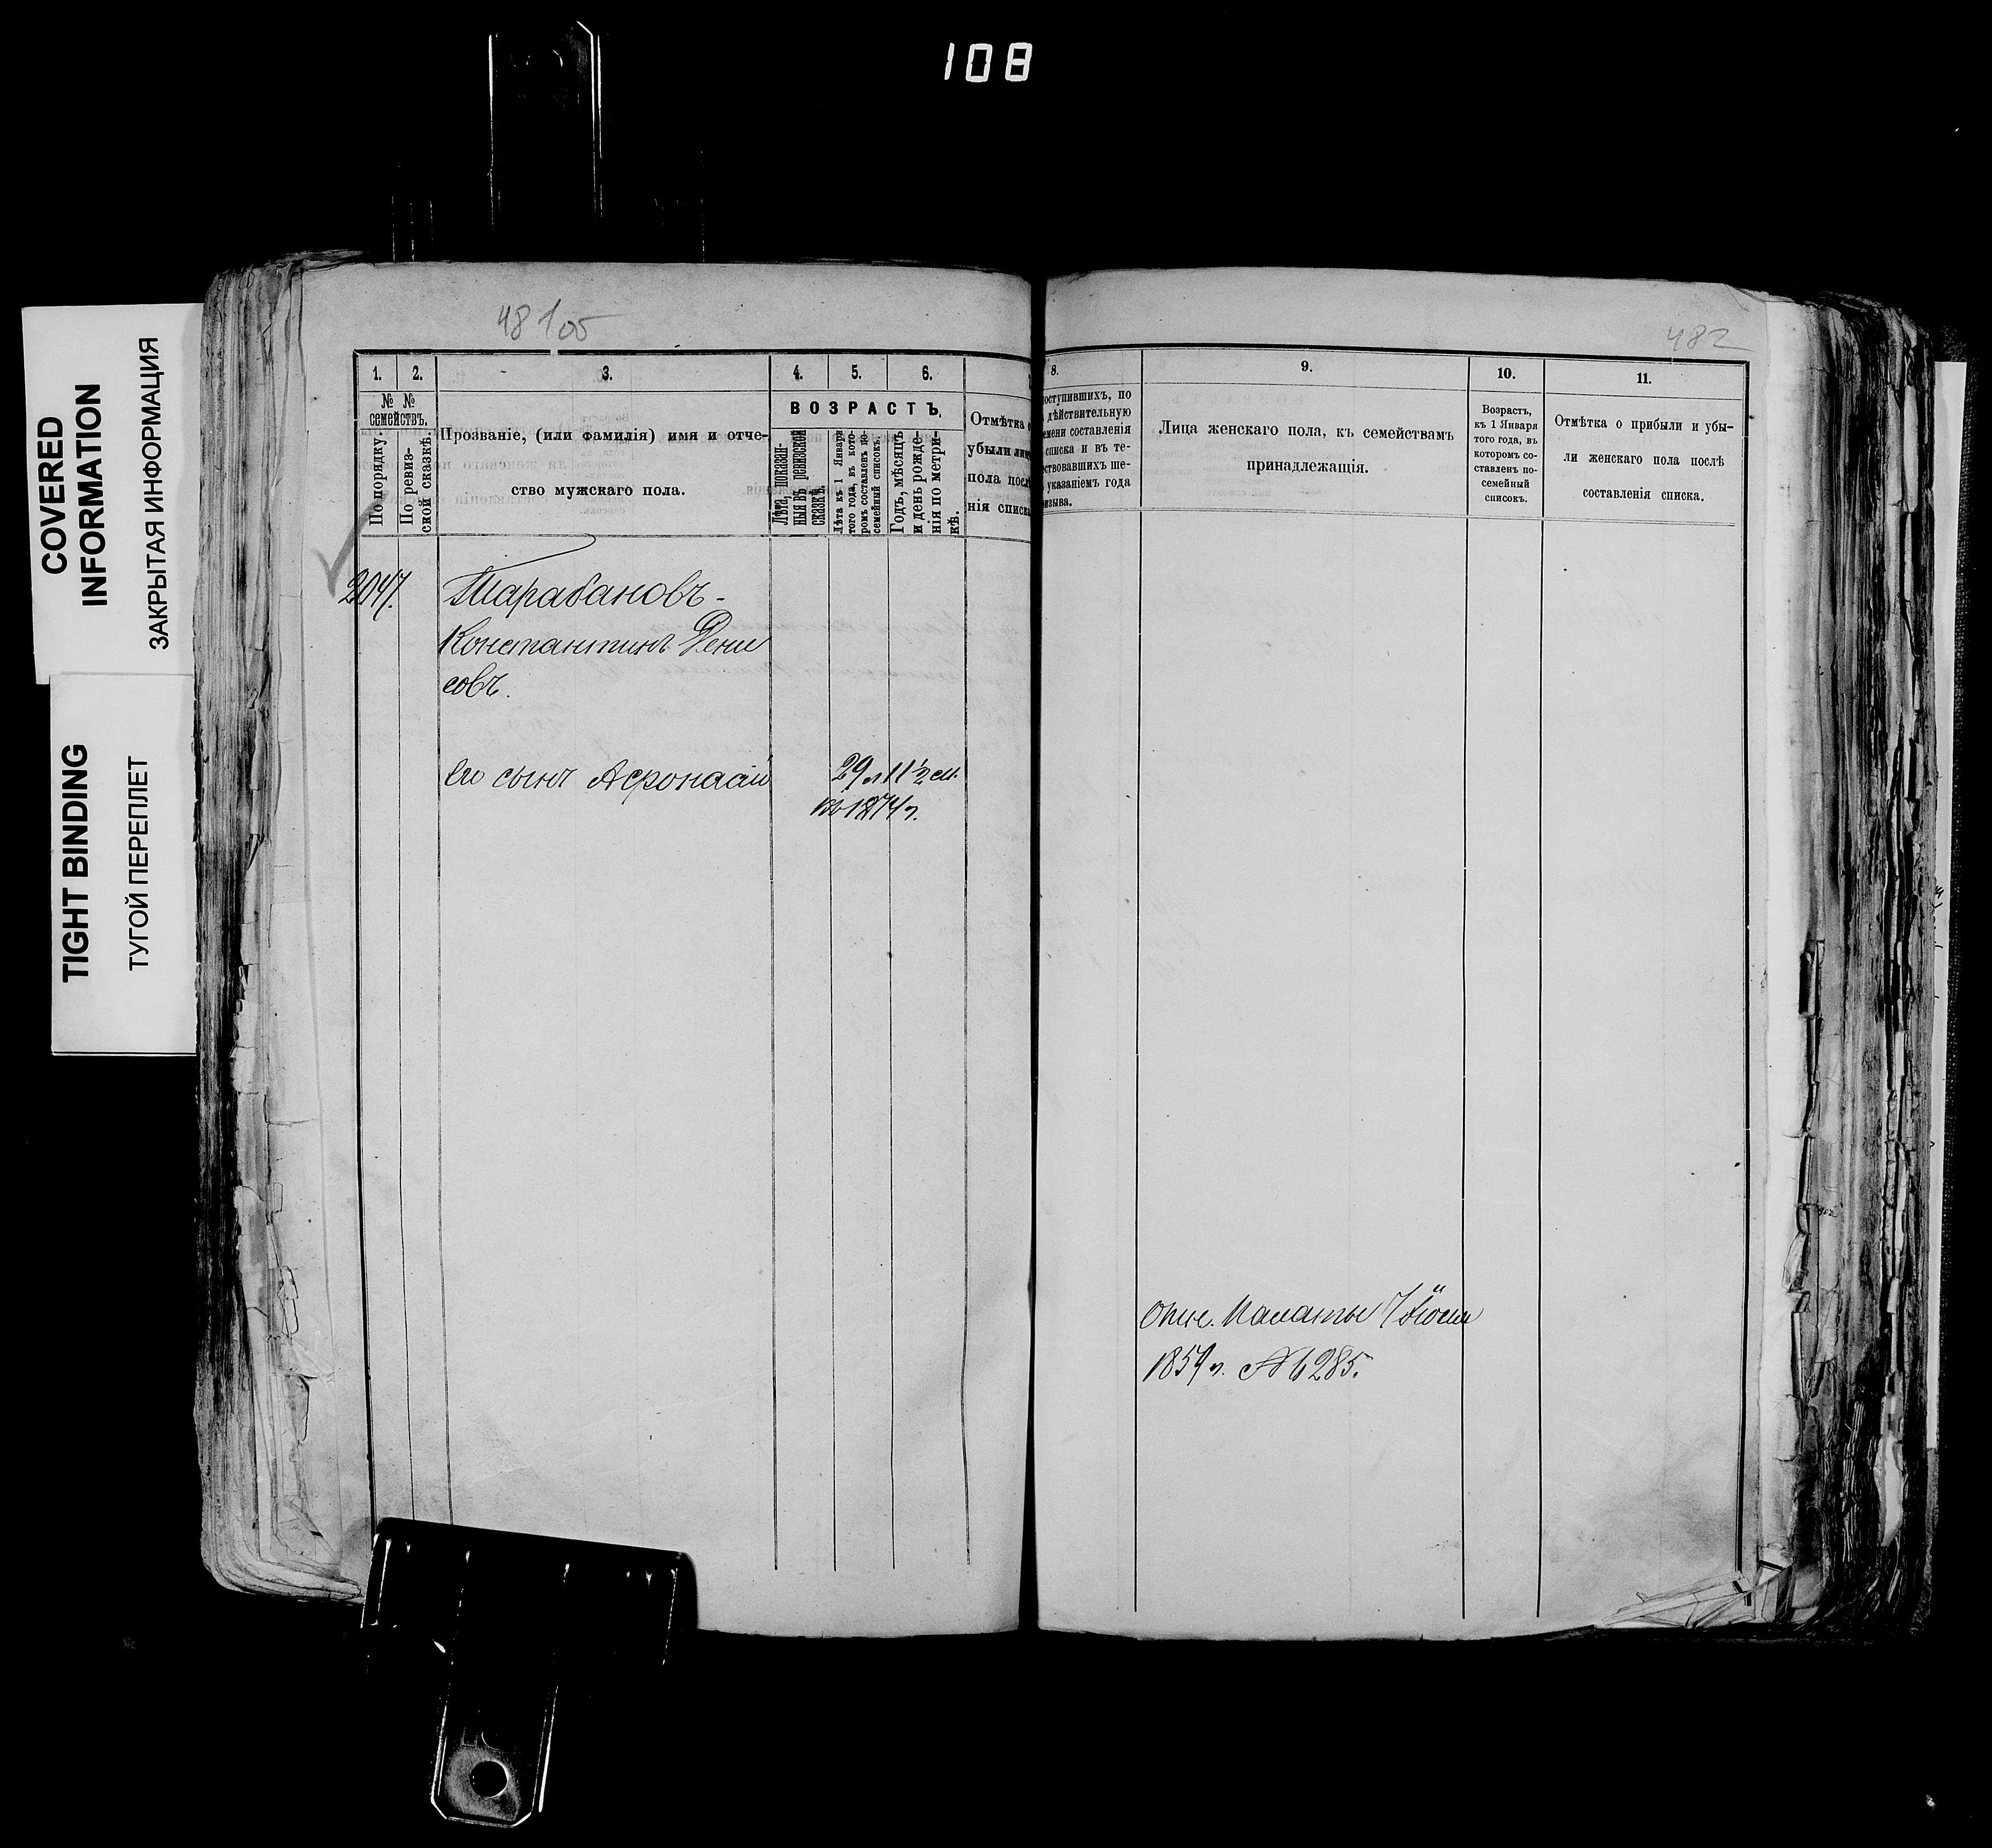 108
COVERED
INFORMATION
ЗАКРЫТАЯ ИНФОРМАЦИЯ
TIGHT BINDING
ТУГОЙ ПЕРЕПЛЕТ
48 105
482
1. 2. 3. 4. 5. 6.
№ №
семействъ.
По порядку.
По ревиз-
ской сказкѣ.
Прозваніе, (или фамилія) имя и отче-
ство мужскаго пола.
ВОЗРАСТЪ.
Лѣта, показан-
ныя въ ревизской
сказкѣ.
Лѣта къ 1 Января
того года, въ кото-
ромъ составленъ по-
семейный списокъ.
Годъ, мѣсяцъ
и день рожде-
нія по метри-
кѣ.
Отмѣтка
убыли
пола
нія списка
8. 9. 10. 11.
поступившихъ, по
дѣйствительную
составленія
списка и въ те-
ше-
указаніемъ года
Лица женскаго пола, къ семействамъ
принадлежащія.
Возрастъ,
къ 1 Января
того года, въ
которомъ со-
ставленъ по-
семейный
списокъ.
Отмѣтка о прибыли и убы-
ли женскаго пола послѣ
составленія списка.
2047. Тарабановъ -
Константинъ Дени
совъ.
Его сынъ Афонасій 29 л 11 1/2 м.
въ 1874 г.
Палаты 7 Іюля
185 г. № 6285.